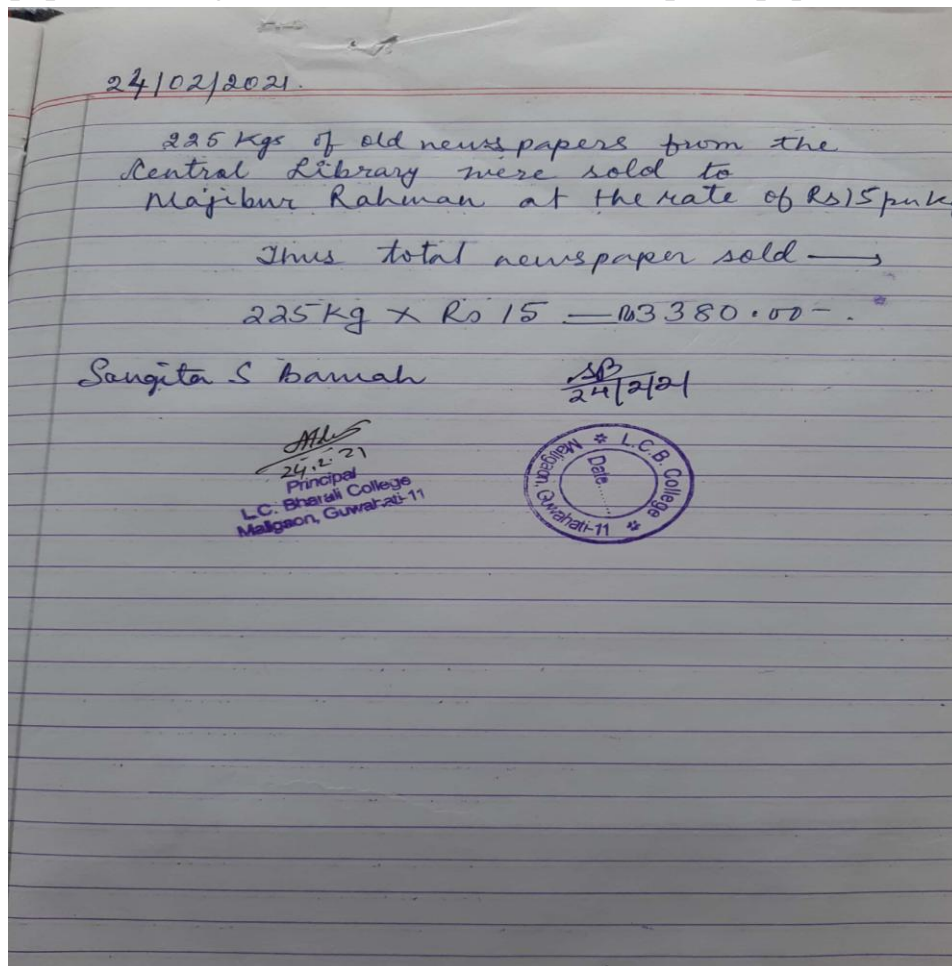 24/02/2021.
225 Kgs of old newspapers from the
Central Library were sold to
Majibur Rahman at the rate of Rs 15 per K
Thus total newspaper sold →
225 kg × Rs 15 — Rs 3380.00 - .
Sangita S Baruah
SB
24/2/21
24.2.21
Principal
L.C. Bharali College
Maligaon, Guwahati-11
L.C.B. College
Maligaon, Guwahati-11
Date